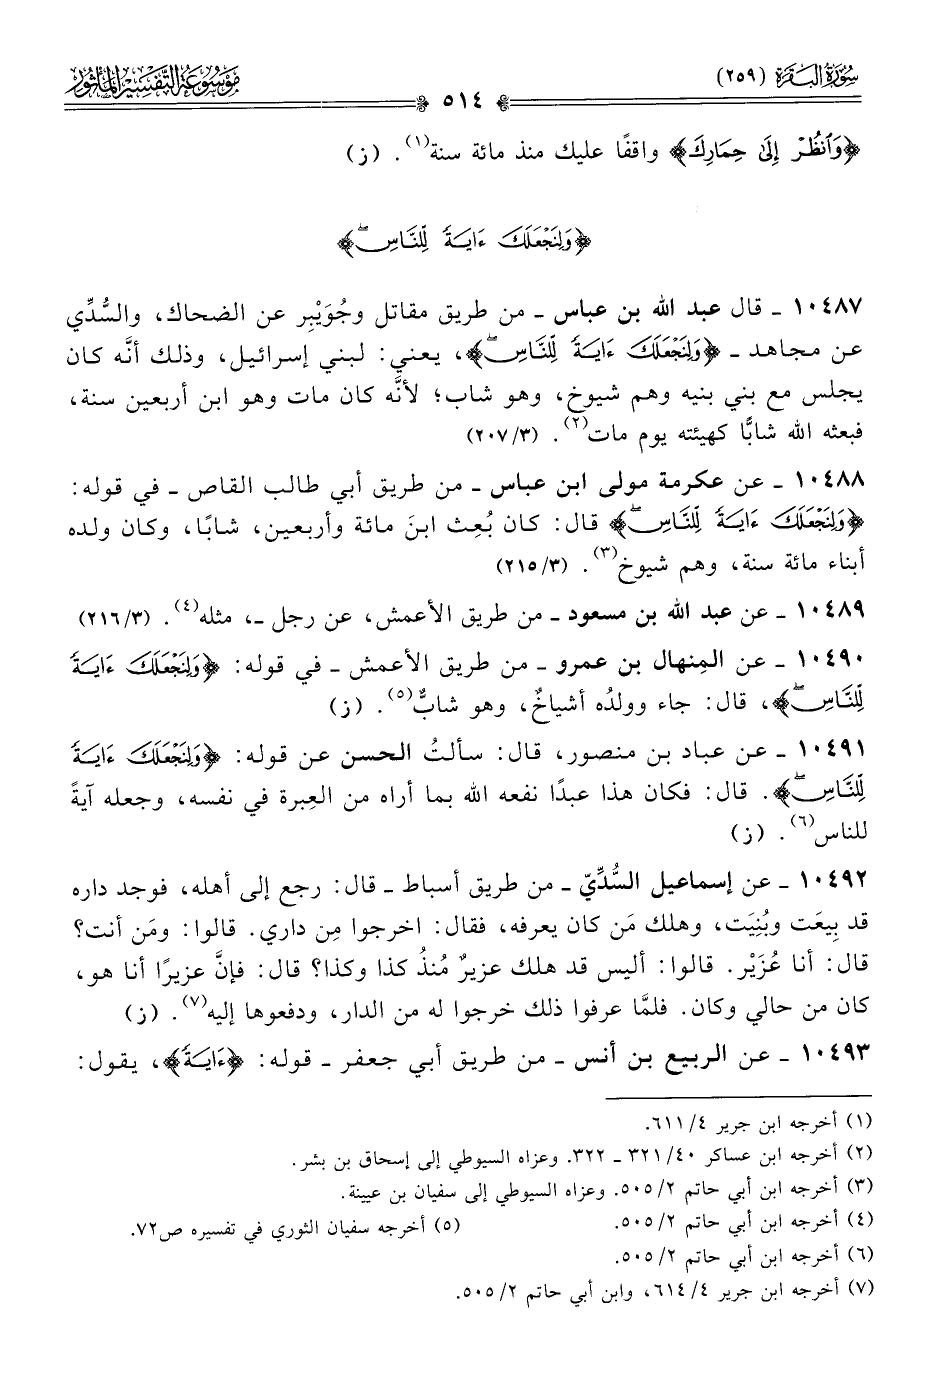 سُورَةُ البَقَرَة (٢٥٩)
مَوْسُوعَةُ التَّفْسِيرِ المَأْثُورِ
٥١٤
﴿وَٱنظُرْ إِلَىٰ حِمَارِكَ﴾ واقفًا عليك منذ مائة سنة(١). (ز)
﴿وَلِنَجْعَلَكَ ءَايَةً لِّلنَّاسِۖ﴾
١٠٤٨٧ ـ قال عبد الله بن عباس ـ من طريق مقاتل وجُوَيْبِر عن الضحاك، والسُّدِّي
عن مجاهد ـ ﴿وَلِنَجْعَلَكَ ءَايَةً لِّلنَّاسِۖ﴾، يعني: لبني إسرائيل، وذلك أنَّه كان
يجلس مع بني بنيه وهم شيوخ، وهو شاب؛ لأنَّه كان مات وهو ابن أربعين سنة،
فبعثه الله شابًّا كهيئته يوم مات(٢). (٢٠٧/٣)
١٠٤٨٨ ـ عن عكرمة مولى ابن عباس ـ من طريق أبي طالب القاص ـ في قوله:
﴿وَلِنَجْعَلَكَ ءَايَةً لِّلنَّاسِۖ﴾ قال: كان بُعِث ابنَ مائة وأربعين، شابًا، وكان ولده
أبناء مائة سنة، وهم شيوخ(٣). (٢١٥/٣)
١٠٤٨٩ ـ عن عبد الله بن مسعود ـ من طريق الأعمش، عن رجل ـ، مثله(٤). (٢١٦/٣)
١٠٤٩٠ ـ عن المِنهال بن عمرو ـ من طريق الأعمش ـ في قوله: ﴿وَلِنَجْعَلَكَ ءَايَةً
لِّلنَّاسِۖ﴾، قال: جاء وولدُه أشياخٌ، وهو شابٌّ(٥). (ز)
١٠٤٩١ ـ عن عباد بن منصور، قال: سألتُ الحسن عن قوله: ﴿وَلِنَجْعَلَكَ ءَايَةً
لِّلنَّاسِۖ﴾. قال: فكان هذا عبدًا نفعه الله بما أراه من العِبرة في نفسه، وجعله آيةً
للناس(٦). (ز)
١٠٤٩٢ ـ عن إسماعيل السُّدِّيّ ـ من طريق أسباط ـ قال: رجع إلى أهله، فوجد داره
قد بِيعَت وبُنِيَت، وهلك مَن كان يعرفه، فقال: اخرجوا مِن داري. قالوا: ومَن أنت؟
قال: أنا عُزَيْر. قالوا: أليس قد هلك عزيرٌ مُنذُ كذا وكذا؟ قال: فإنَّ عزيرًا أنا هو،
كان من حالي وكان. فلمَّا عرفوا ذلك خرجوا له من الدار، ودفعوها إليه(٧). (ز)
١٠٤٩٣ ـ عن الربيع بن أنس ـ من طريق أبي جعفر ـ قوله: ﴿ءَايَةً﴾، يقول:
(١) أخرجه ابن جرير ٤/ ٦١١.
(٢) أخرجه ابن عساكر ٤٠/ ٣٢١ ـ ٣٢٢. وعزاه السيوطي إلى إسحاق بن بشر.
(٣) أخرجه ابن أبي حاتم ٢/ ٥٠٥. وعزاه السيوطي إلى سفيان بن عيينة.
(٤) أخرجه ابن أبي حاتم ٢/ ٥٠٥. (٥) أخرجه سفيان الثوري في تفسيره ص٧٢.
(٦) أخرجه ابن أبي حاتم ٢/ ٥٠٥.
(٧) أخرجه ابن جرير ٤/ ٦١٤، وابن أبي حاتم ٢/ ٥٠٥.